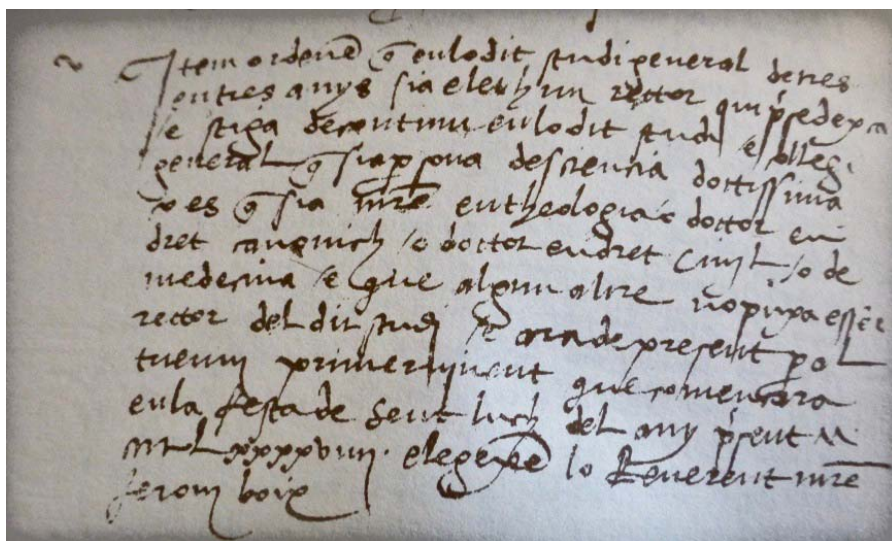 Item ordenē q̄ en lo dit studi general de tres
en tres anys sia elet hun rector qui p̄sedexca
/e stiga de continu en lo dit studi e collegi
general q̄ sia ꝑsona de sciencia doctissima
ço es q̄ sia mrē en theologia /o doctor en
dret canonich /o doctor en dret civil /o de
medecina /e que algun altre no puxa esser
rector del dit studi /e ara de present ꝑ lo
trienni primer vinent que comencara
en la festa de sent luch del any p̄sent M
xxxxviiii elegexē lo Reverent mrē
Jeroni boix